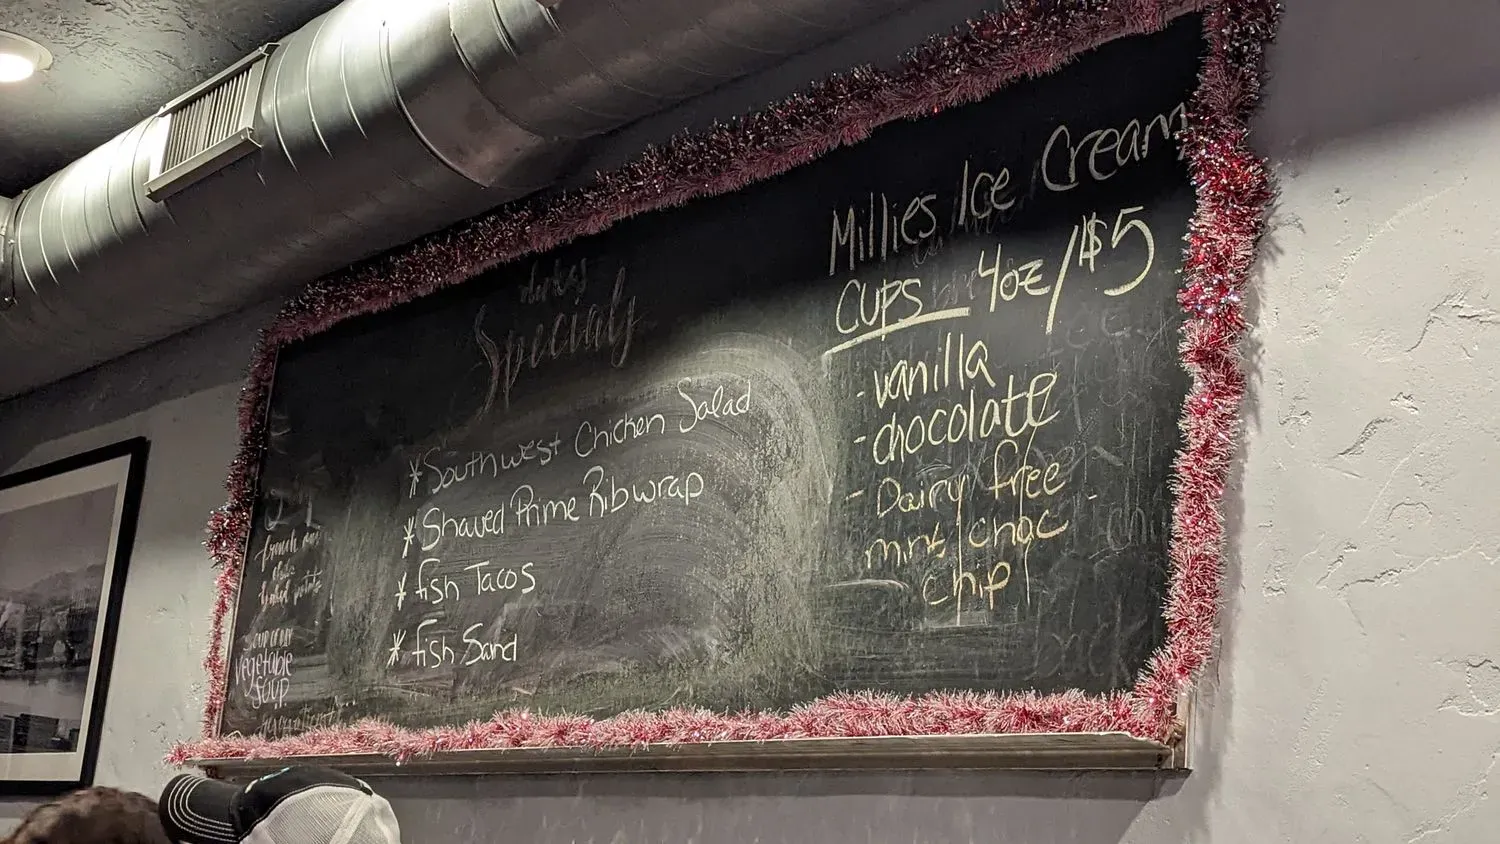 Specials
*Southwest Chicken Salad
*Shaved Prime Rib wrap
*fish Tacos
*fish Sand
SOUP OF DAY
Vegetable
Soup
Millies Ice Cream
CUPS 4oz/$5
-vanilla
-chocolate
-Dairy free
mint choc
chip